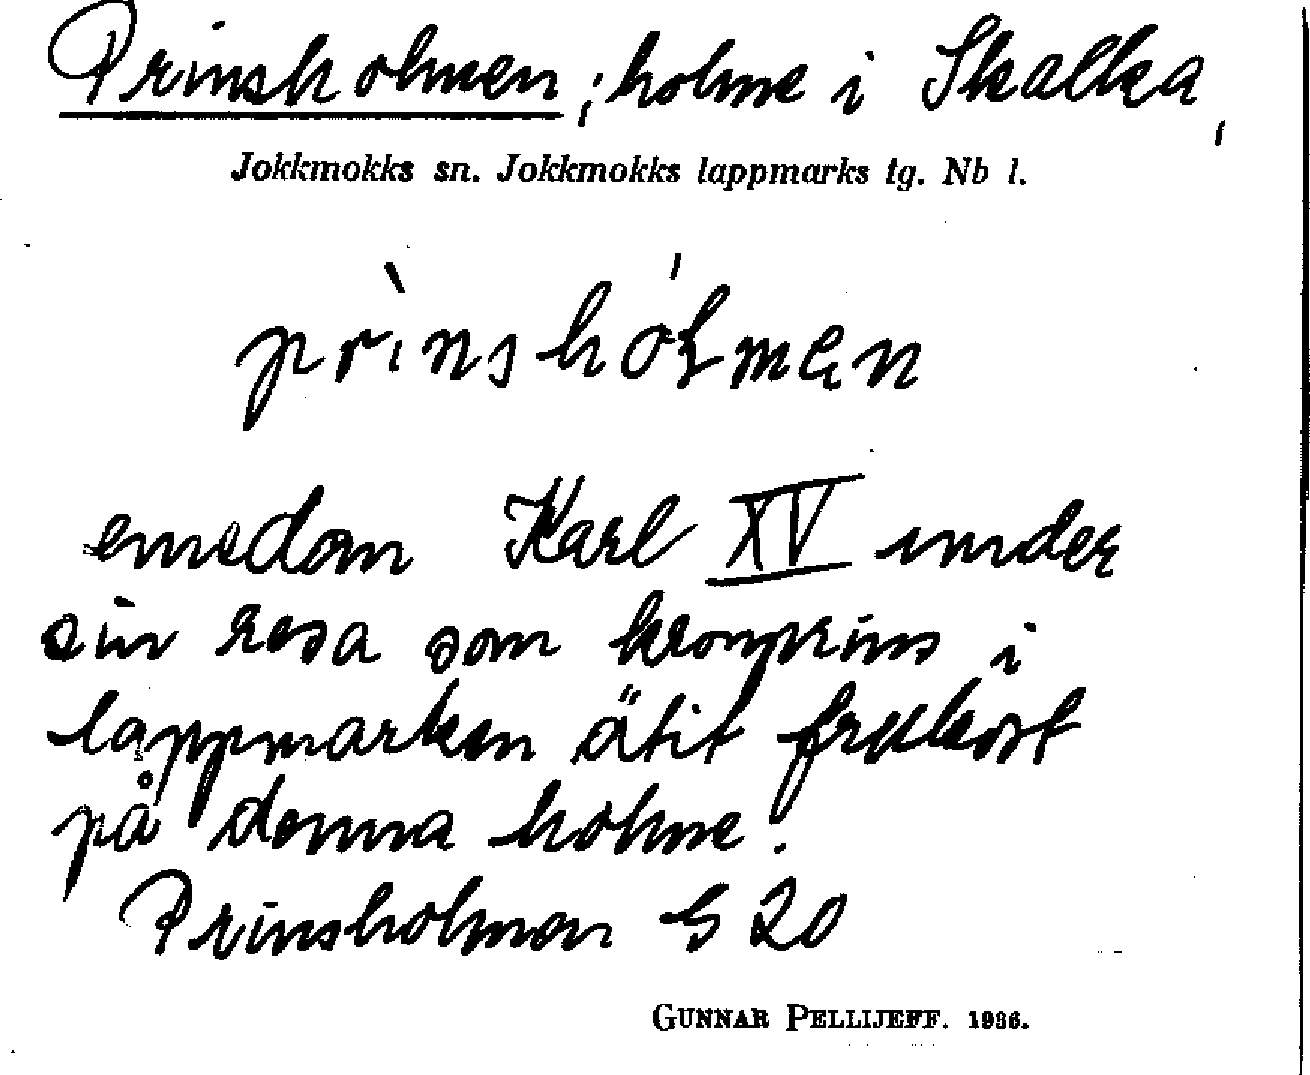 Prinsholmen; holme i Skalka,
Jokkmokks sn. Jokkmokks lappmarks tg. Nb l.
prinshólmen
emedan Karl XV under
sin resa som kronprins i
lappmarken ätit frukost
på denna holme.
Prinsholmen G 20
GUNNAR PELLIJEFF. 1936.